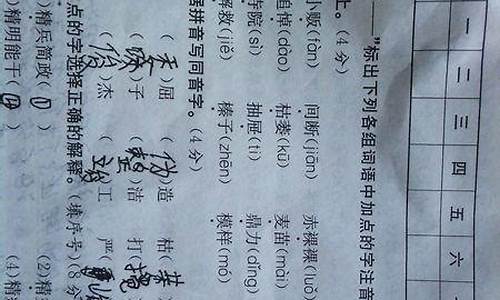 一 二 三 四 五 六
——”标出下列各组词语中加点的字注音
上。(4分)
小贩(fàn) 间断(jiān) 赤裸裸(luǒ)
追悼(dào) 枯萎(kū) 麦苗(mài)
寺院(sì) 抽屉(tì) 鼎力(dǐng)
解救(jiě) 榛子(zhēn) 模样(mó)
据拼音写同音字。(4分)
( )屈 (伪)造 枯(
( )子 (整)洁 打(
(俊)杰 (竣)工 严(
点的字选择正确的解释。(填序号)(8分
)精兵简政( ) (2)精
)精明能干( ) (4)精